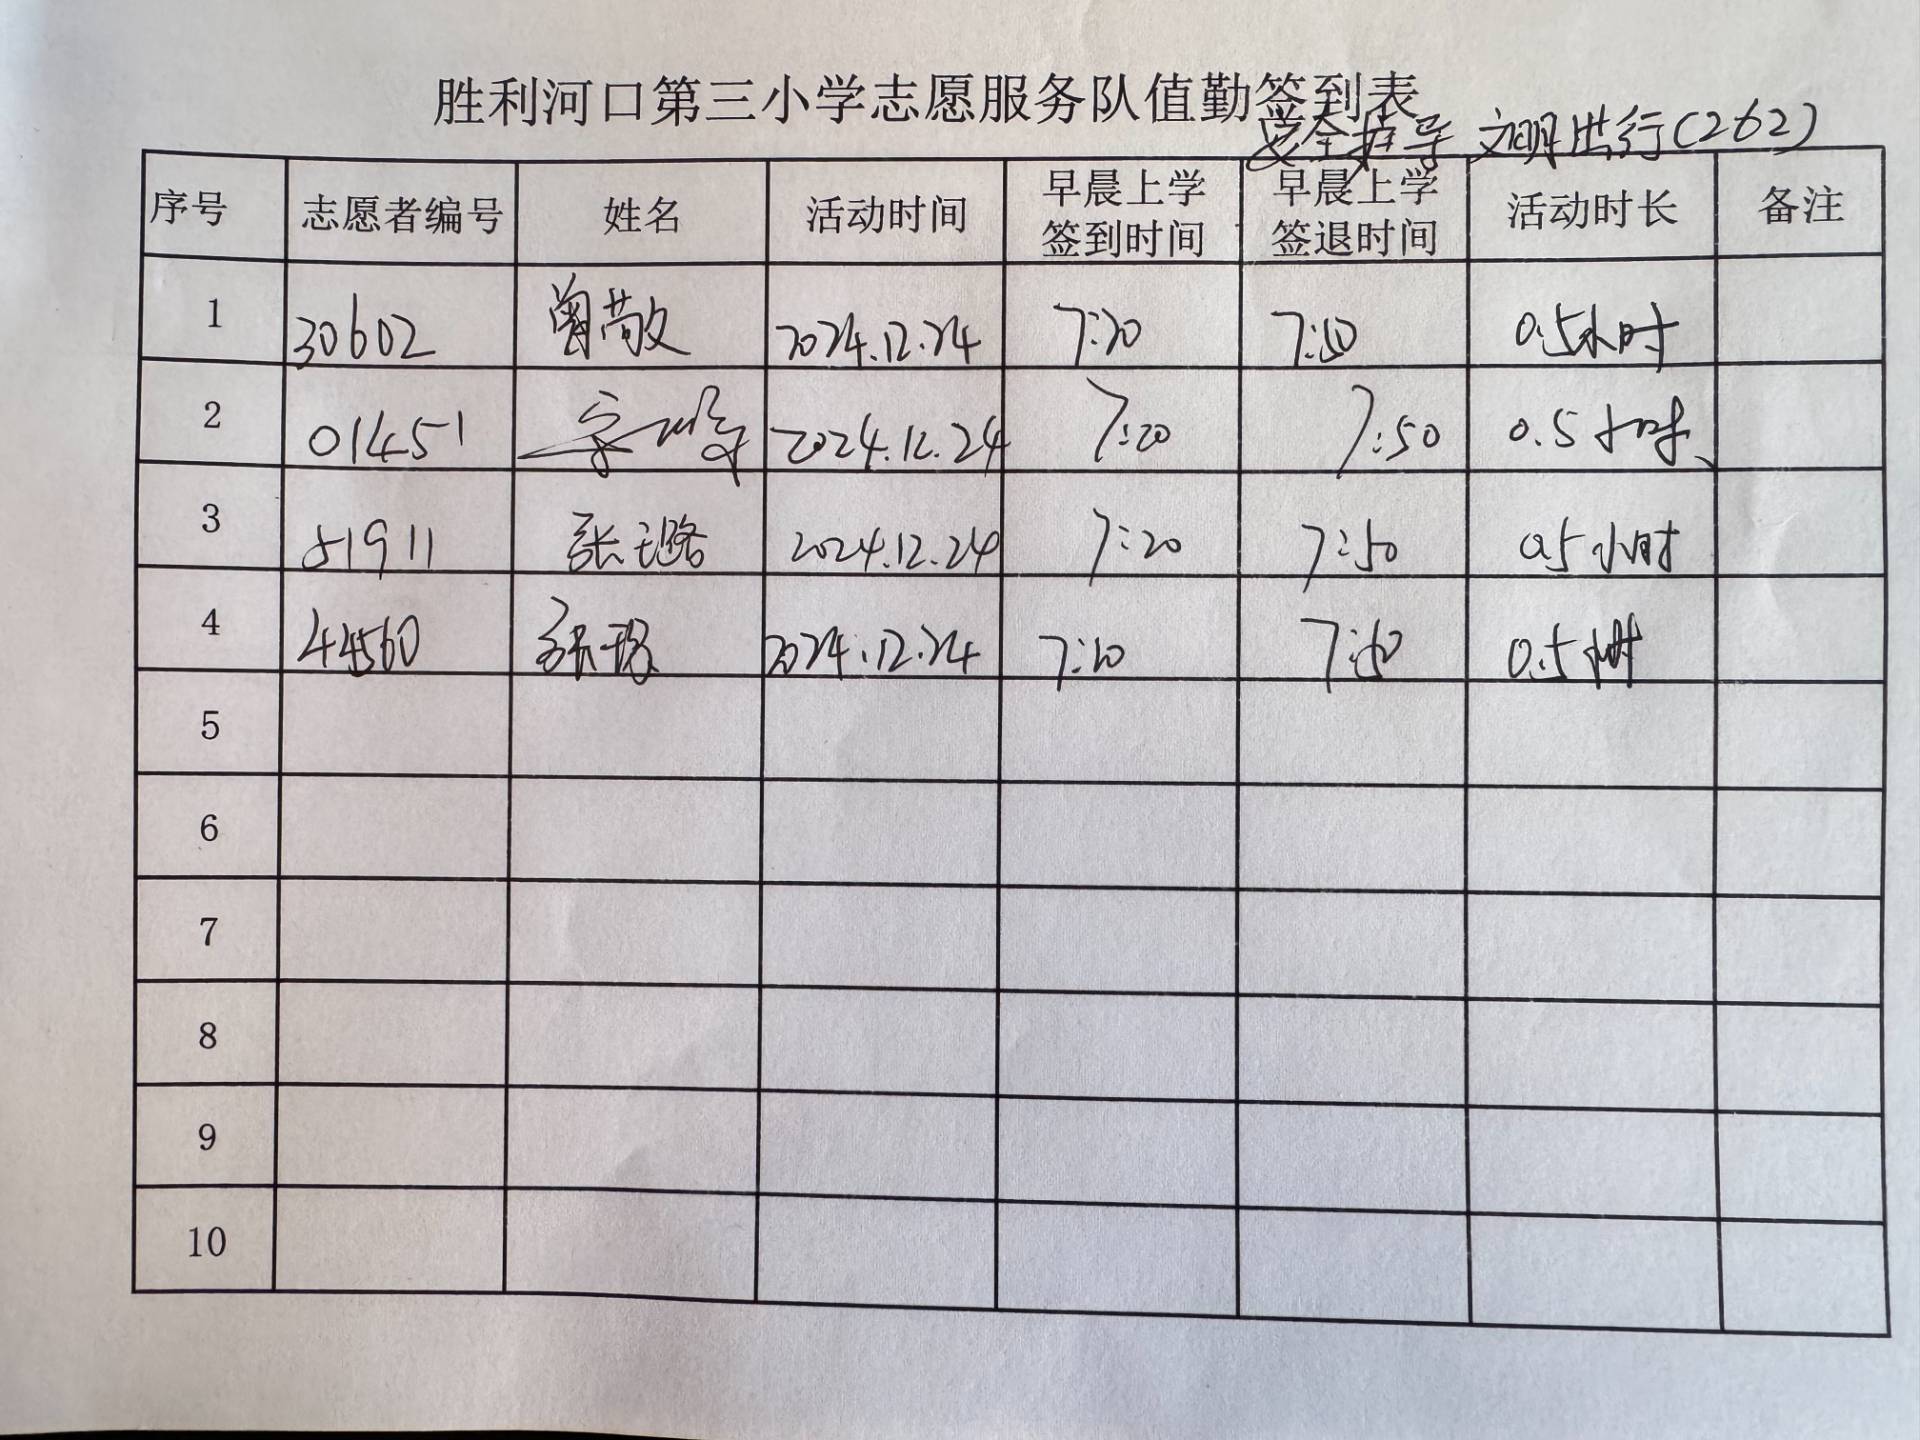 胜利河口第三小学志愿服务队值勤签到表
安全护导 文明出行(262)
序号 志愿者编号 姓名 活动时间 早晨上学签到时间 早晨上学签退时间 活动时长 备注
1 30602 曾敬 2024.12.24 7:20 7:50 0.5小时
2 01451 2024.12.24 7:20 7:50 0.5小时
3 51911 张璐 2024.12.24 7:20 7:50 0.5小时
4 44560 2024.12.24 7:20 7:50 0.5小时
5
6
7
8
9
10